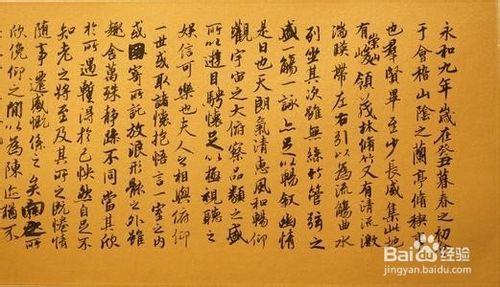 永和九年歲在癸丑暮春之初會
于會稽山陰之蘭亭脩稧事
也羣賢畢至少長咸集此地
有崇山峻領茂林脩竹又有清流激
湍暎帶左右引以為流觴曲水
列坐其次雖無絲竹管弦之
盛一觴一詠亦足以暢叙幽情
是日也天朗氣清惠風和暢仰
觀宇宙之大俯察品類之盛
所以遊目騁懷足以極視聽之
娛信可樂也夫人之相與俯仰
一世或取諸懷抱悟言一室之內
或因寄所託放浪形骸之外雖
趣舍萬殊靜躁不同當其欣
於所遇暫得於己怏然自足不
知老之將至及其所之既惓情
隨事遷感慨係之矣向之所
欣俛仰之間以為陳迹猶不
Baidu经验
jingyan.baidu.com